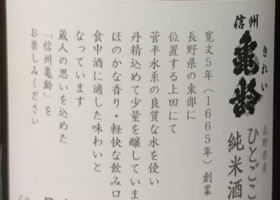 信州
亀齢
きれい
長野県産
ひとごこ
純米酒
寛文5年(1665年)創業
長野県の東部に
位置する上田にて
菅平水系の良質な水を使い
丹精込めて少量を醸していま
ほのかな香り・軽快な飲み口
食中酒に適した味わいと
なっています
蔵人の思いを込めた
「信州亀齢」を
お楽しみください